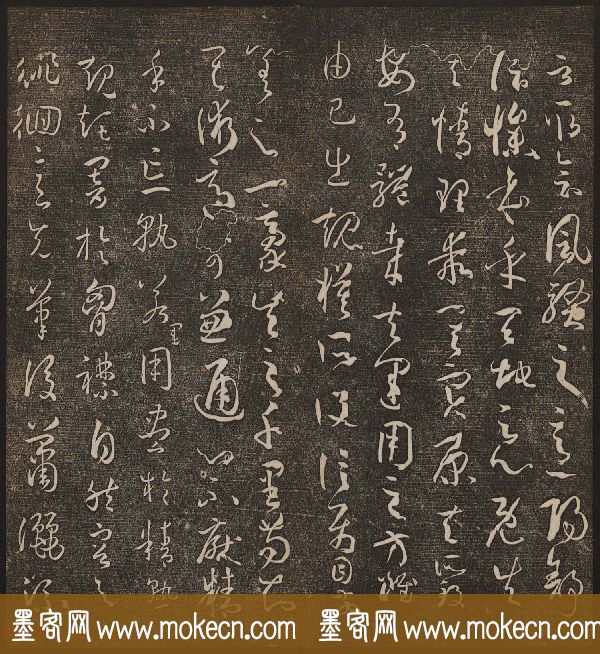 言取會風騷之意陽舒
陰慘本乎天地之心既失
其情理乖其實原夫所致
安有體哉夫運用之方雖
由己出規模所設信屬目前
差之一豪失之千里苟知
其術適可兼通心不厭精
手不忘熟若運用盡於精熟
規矩闇於胸襟自然容與
徘徊意先筆後瀟灑流
墨客网 www.mokecn.com 墨客网 www.mokecn.com